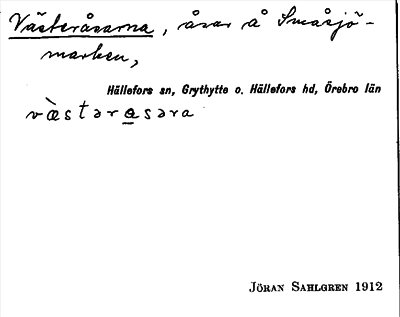 Västeråsarna, åsar å Småsjö-
marken,
Hällefors sn, Grythytte o. Hällefors hd, Örebro län
væ̀stəra̲sara
JÖRAN SAHLGREN 1912